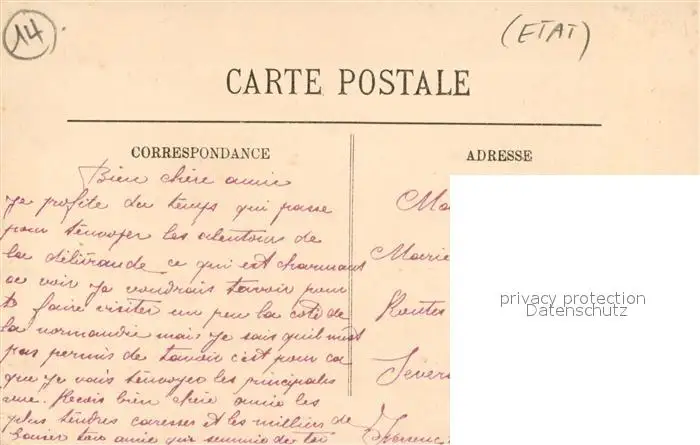 14
(ETAT)
CARTE POSTALE
CORRESPONDANCE
ADRESSE
Bien chère amie
je profite du temps qui passe
pour t'envoyer les alentours de
la délivrande ce qui est charmant
a voir je voudrais tavoir pour
te faire visiter un peu la coté de
la normandie mais je sais quil m'est
pas permis de tavoir c'est pour ca
que je vais t'envoyer les principales
vue. Recois bien chère amie les
plus tendres caresses et les milliers de
baiser ton amie qui de toi
Marie
Routes
Sever
privacy protection
Datenschutz